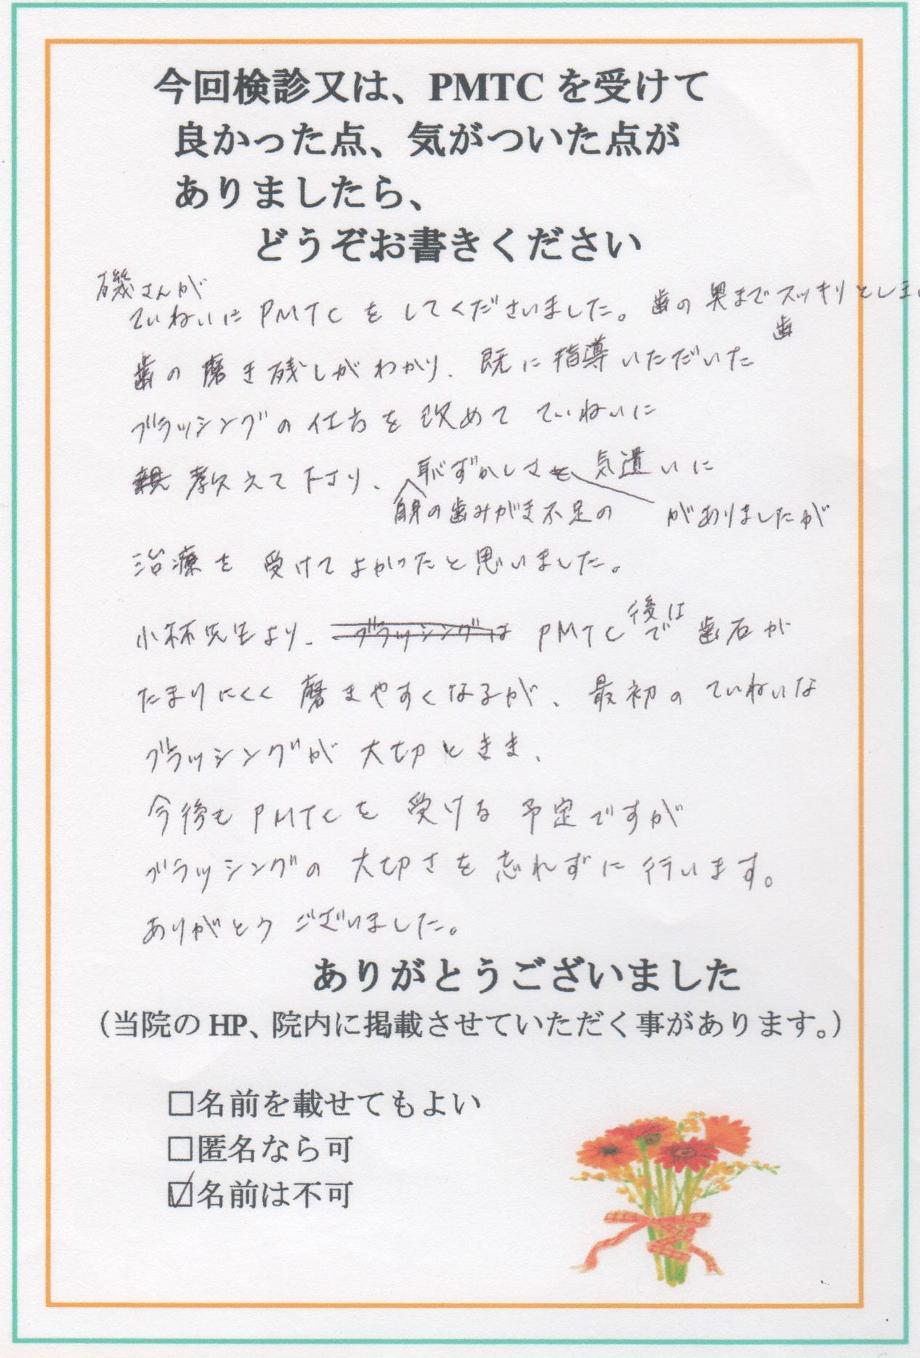 今回検診又は、PMTCを受けて
良かった点、気がついた点が
ありましたら、
どうぞお書きください
磯さんが
ていねいにPMTCをしてくださいました。歯の奥までスッキリとしまし
歯
歯の磨き残しがわかり、既に指導いただいた
ブラッシングの仕方を改めてていねいに
教えて下さり、恥ずかしさと気遣いに
自身の歯みがき不足の がありましたが
治療を受けてよかったと思いました。
小林先生より、ブラッシングは PMTC後は で歯石が
たまりにくく磨きやすくなるが、最初のていねいな
ブラッシングが大切ときき、
今後もPMTCを受ける予定ですが
ブラッシングの大切さを忘れずに行います。
ありがとうございました。
ありがとうございました
（当院のHP、院内に掲載させていただく事があります。）
□名前を載せてもよい
□匿名なら可
☑名前は不可